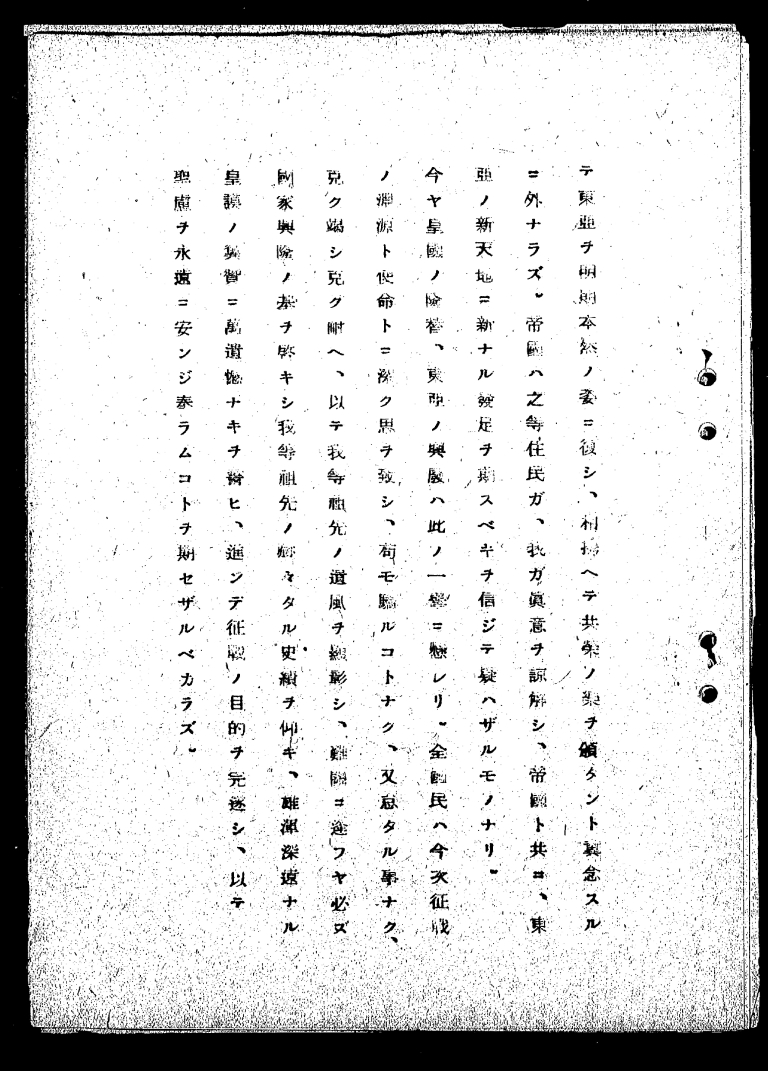 テ東亜ヲ明朗本然ノ姿ニ復シ、相携ヘテ共榮ノ樂ヲ頒タント冀念スル
ニ外ナラズ。帝國ハ之等住民ガ、我ガ眞意ヲ諒解シ、帝國ト共ニ、東
亜ノ新天地ニ新ナル發足ヲ期スベキヲ信ジテ疑ハザルモノナリ。
今ヤ皇國ノ隆替、東亜ノ興廢ハ此ノ一擧ニ懸レリ。全國民ハ今次征戰
ノ淵源ト使命トニ深ク思ヲ致シ、苟モ驕ルコトナク、又怠タル事ナク、
克ク竭シ克ク耐ヘ、以テ我等祖先ノ遺風ヲ顯彰シ、難關ニ逢フヤ必ズ
國家興隆ノ基ヲ啓キシ我等祖先ノ赫々タル史績ヲ仰キ、雄渾深遠ナル
皇謨ノ翼贊ニ萬遺憾ナキヲ誓ヒ、進ンデ征戰ノ目的ヲ完遂シ、以テ
聖慮ヲ永遠ニ安ンジ奉ラムコトヲ期セザルベカラズ。